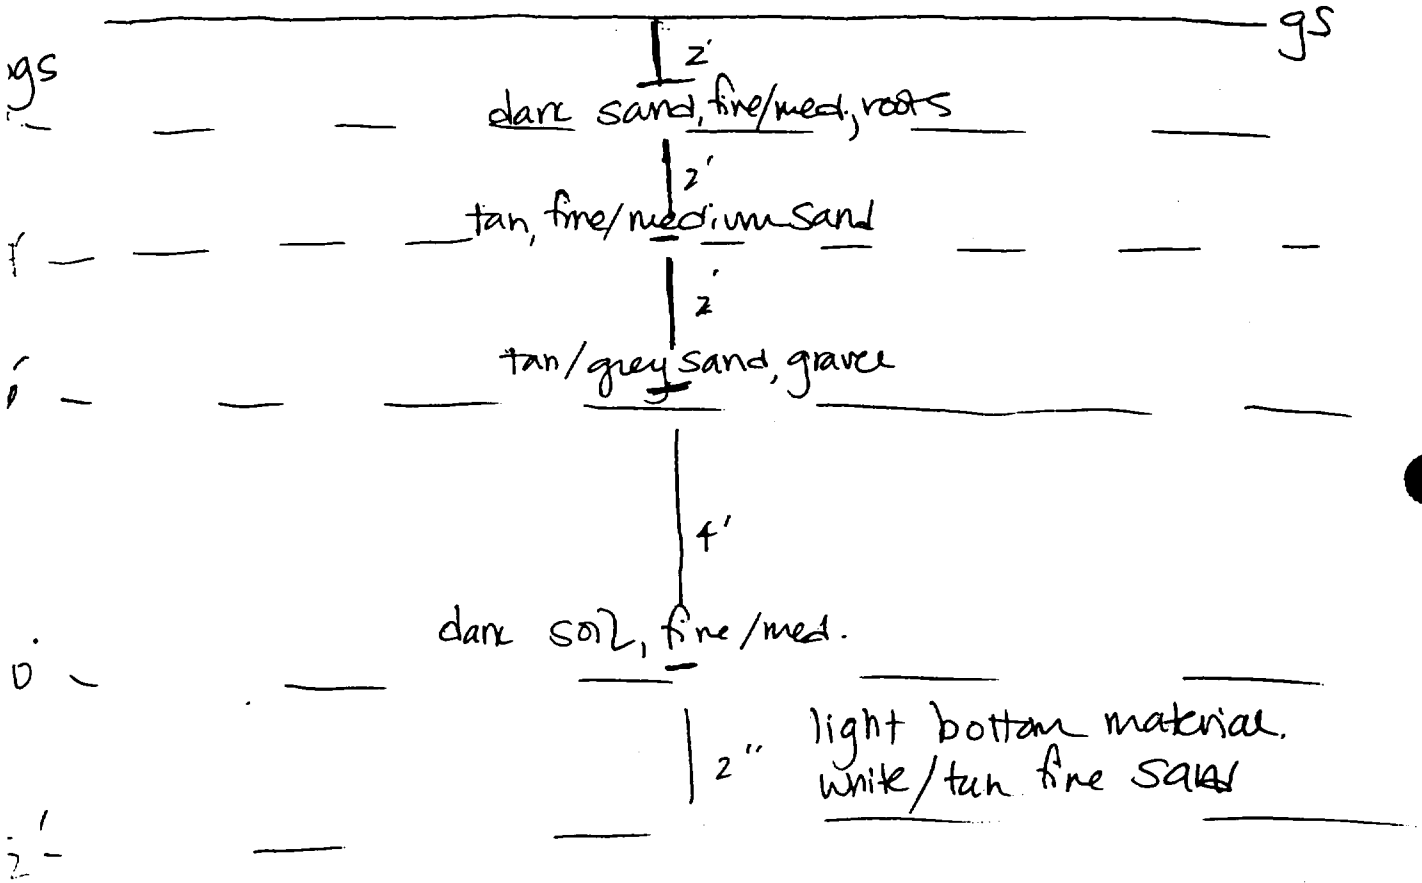 gs
gs
2'
dark sand, fine/med., roots
2'
tan, fine/medium sand
2'
tan/grey sand, gravel
4'
dark soil, fine/med.
0'
2" light bottom material.
white/tan fine sand
2'